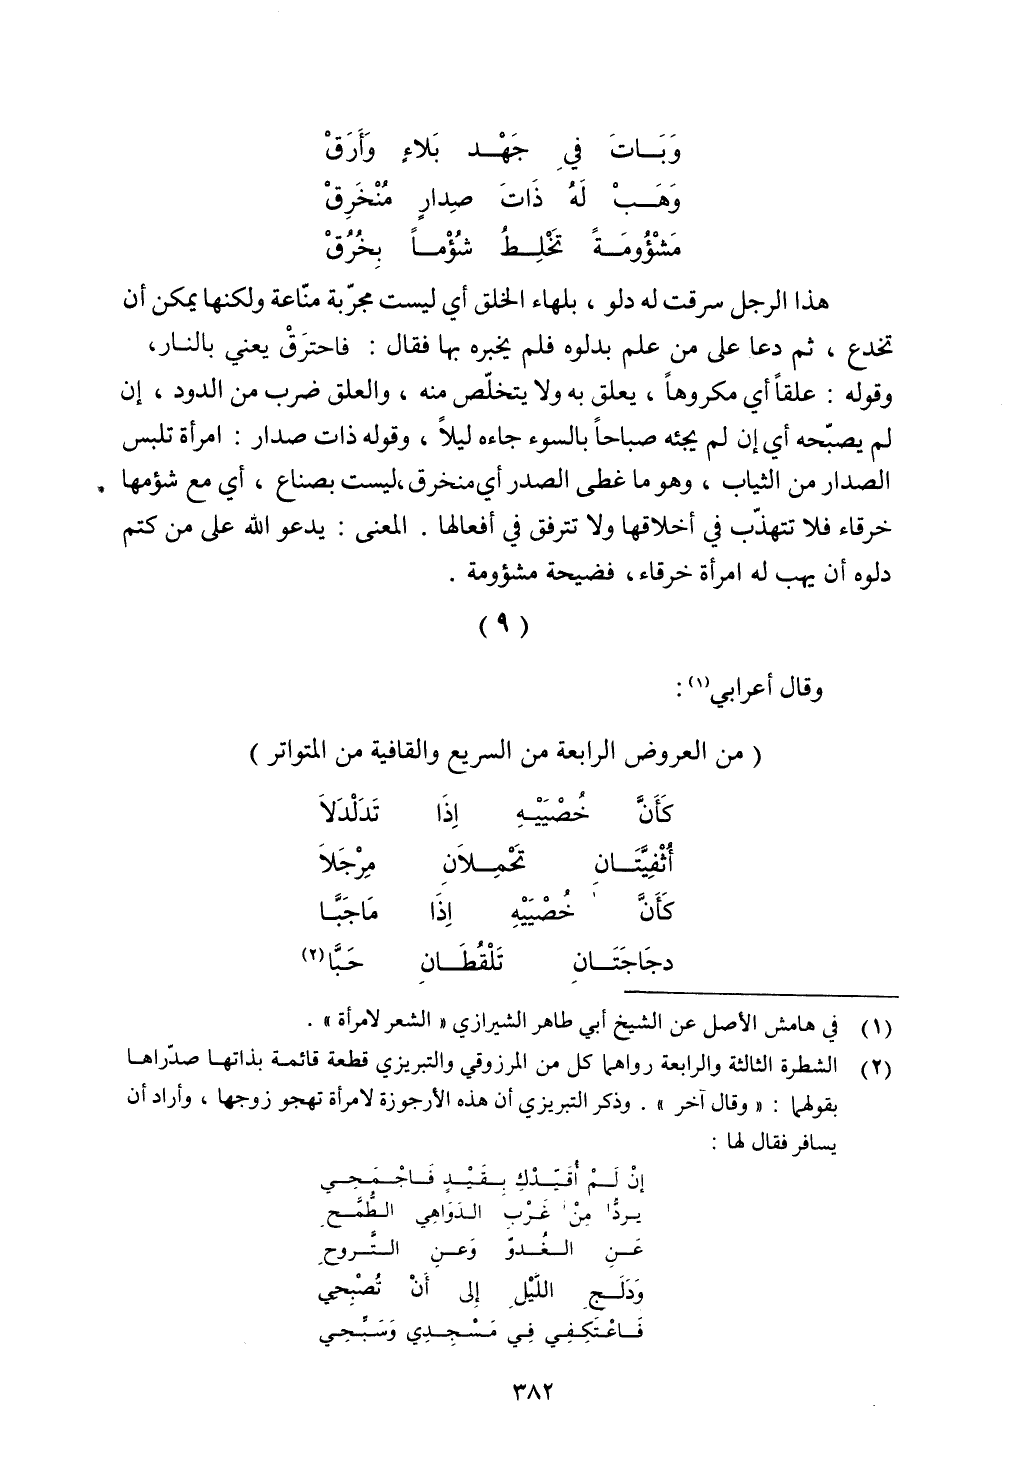 وَبَــاتَ فيِ جَهْــد بَلاءٍ وَأَرَقْ
وَهَــبْ لَهُ ذَاتَ صِدارٍ مُنْخَرِقْ
مَشْؤُومَــةً تَخْلِــطُ شُؤْمــاً بِخُرُقْ
هذا الرجل سرقت له دلو ، بلهاء الخلق أي ليست مجرّبة منّاعة ولكنها يمكن أن
تخدع ، ثم دعا على من علم بدلوه فلم يخبره بها فقال : فاحترَقْ يعني بالنــار،
وقوله : علقاً أي مكروهاً ، يعلق به ولا يتخلّص منه ، والعلق ضرب من الدود ، إن
لم يصبّحه أي إن لم يجئه صباحاً بالسوء جاءه ليلاً ، وقوله ذات صدار : امرأة تلبس
الصدار من الثياب ، وهو ما غطى الصدر أي منخرق،ليست بصناع ، أي مع شؤمها
خرقاء فلا تتهذّب في أخلاقها ولا تترفق في أفعالها . المعنى : يدعو الله على من كتم
دلوه أن يهب له امرأة خرقاء ، فضيحة مشؤومة .
( ٩ )
وقال أعرابي(١) :
( من العروض الرابعة من السريع والقافية من المتواتر )
كَأَنَّ خُصْيَيْــهِ إِذَا تَدَلْدَلاَ
أُثْفِيَّتَــانِ تَحْمِــلاَنِ مِرْجَلاَ
كَأَنَّ خُصْيَيْهِ إِذَا مَاجَبَّــا
دجَاجَتَــانِ تَلْقُطَــانِ حَبَّا(٢)
(١) في هامش الأصل عن الشيخ أبي طاهر الشيرازي « الشعر لامرأة » .
(٢) الشطرة الثالثة والرابعة رواهما كل من المرزوقي والتبريزي قطعة قائمة بذاتها صدّراهــا
بقولهما : « وقال آخر » . وذكر التبريزي أن هذه الأرجوزة لامرأة تهجو زوجها ، وأراد أن
يسافر فقال لها :
إنْ لَــمْ أُقَيِّــدْكِ بِــقَيْــدٍ فَــاجْــمَــحِــي
يــردُّ مِنْ غَــرْبِ الــدَوَاهِي الــطُّمَّــحِ
عَــنِ الــغُــدوِّ وَعــنِ الــتَّــروحِ
وَدَلَــجِ اللَّيْلِ إلى أَنْ تُصْبِحِي
فَــاعْتَكِفِي فِي مَــسْــجِــدِي وَسَبِّحِي
٣٨٢